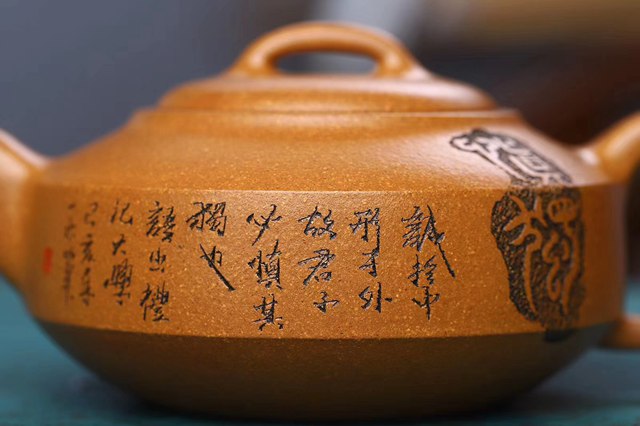 誠於中
形于外
故君子
必慎其
獨也
語出禮
記大學
己亥